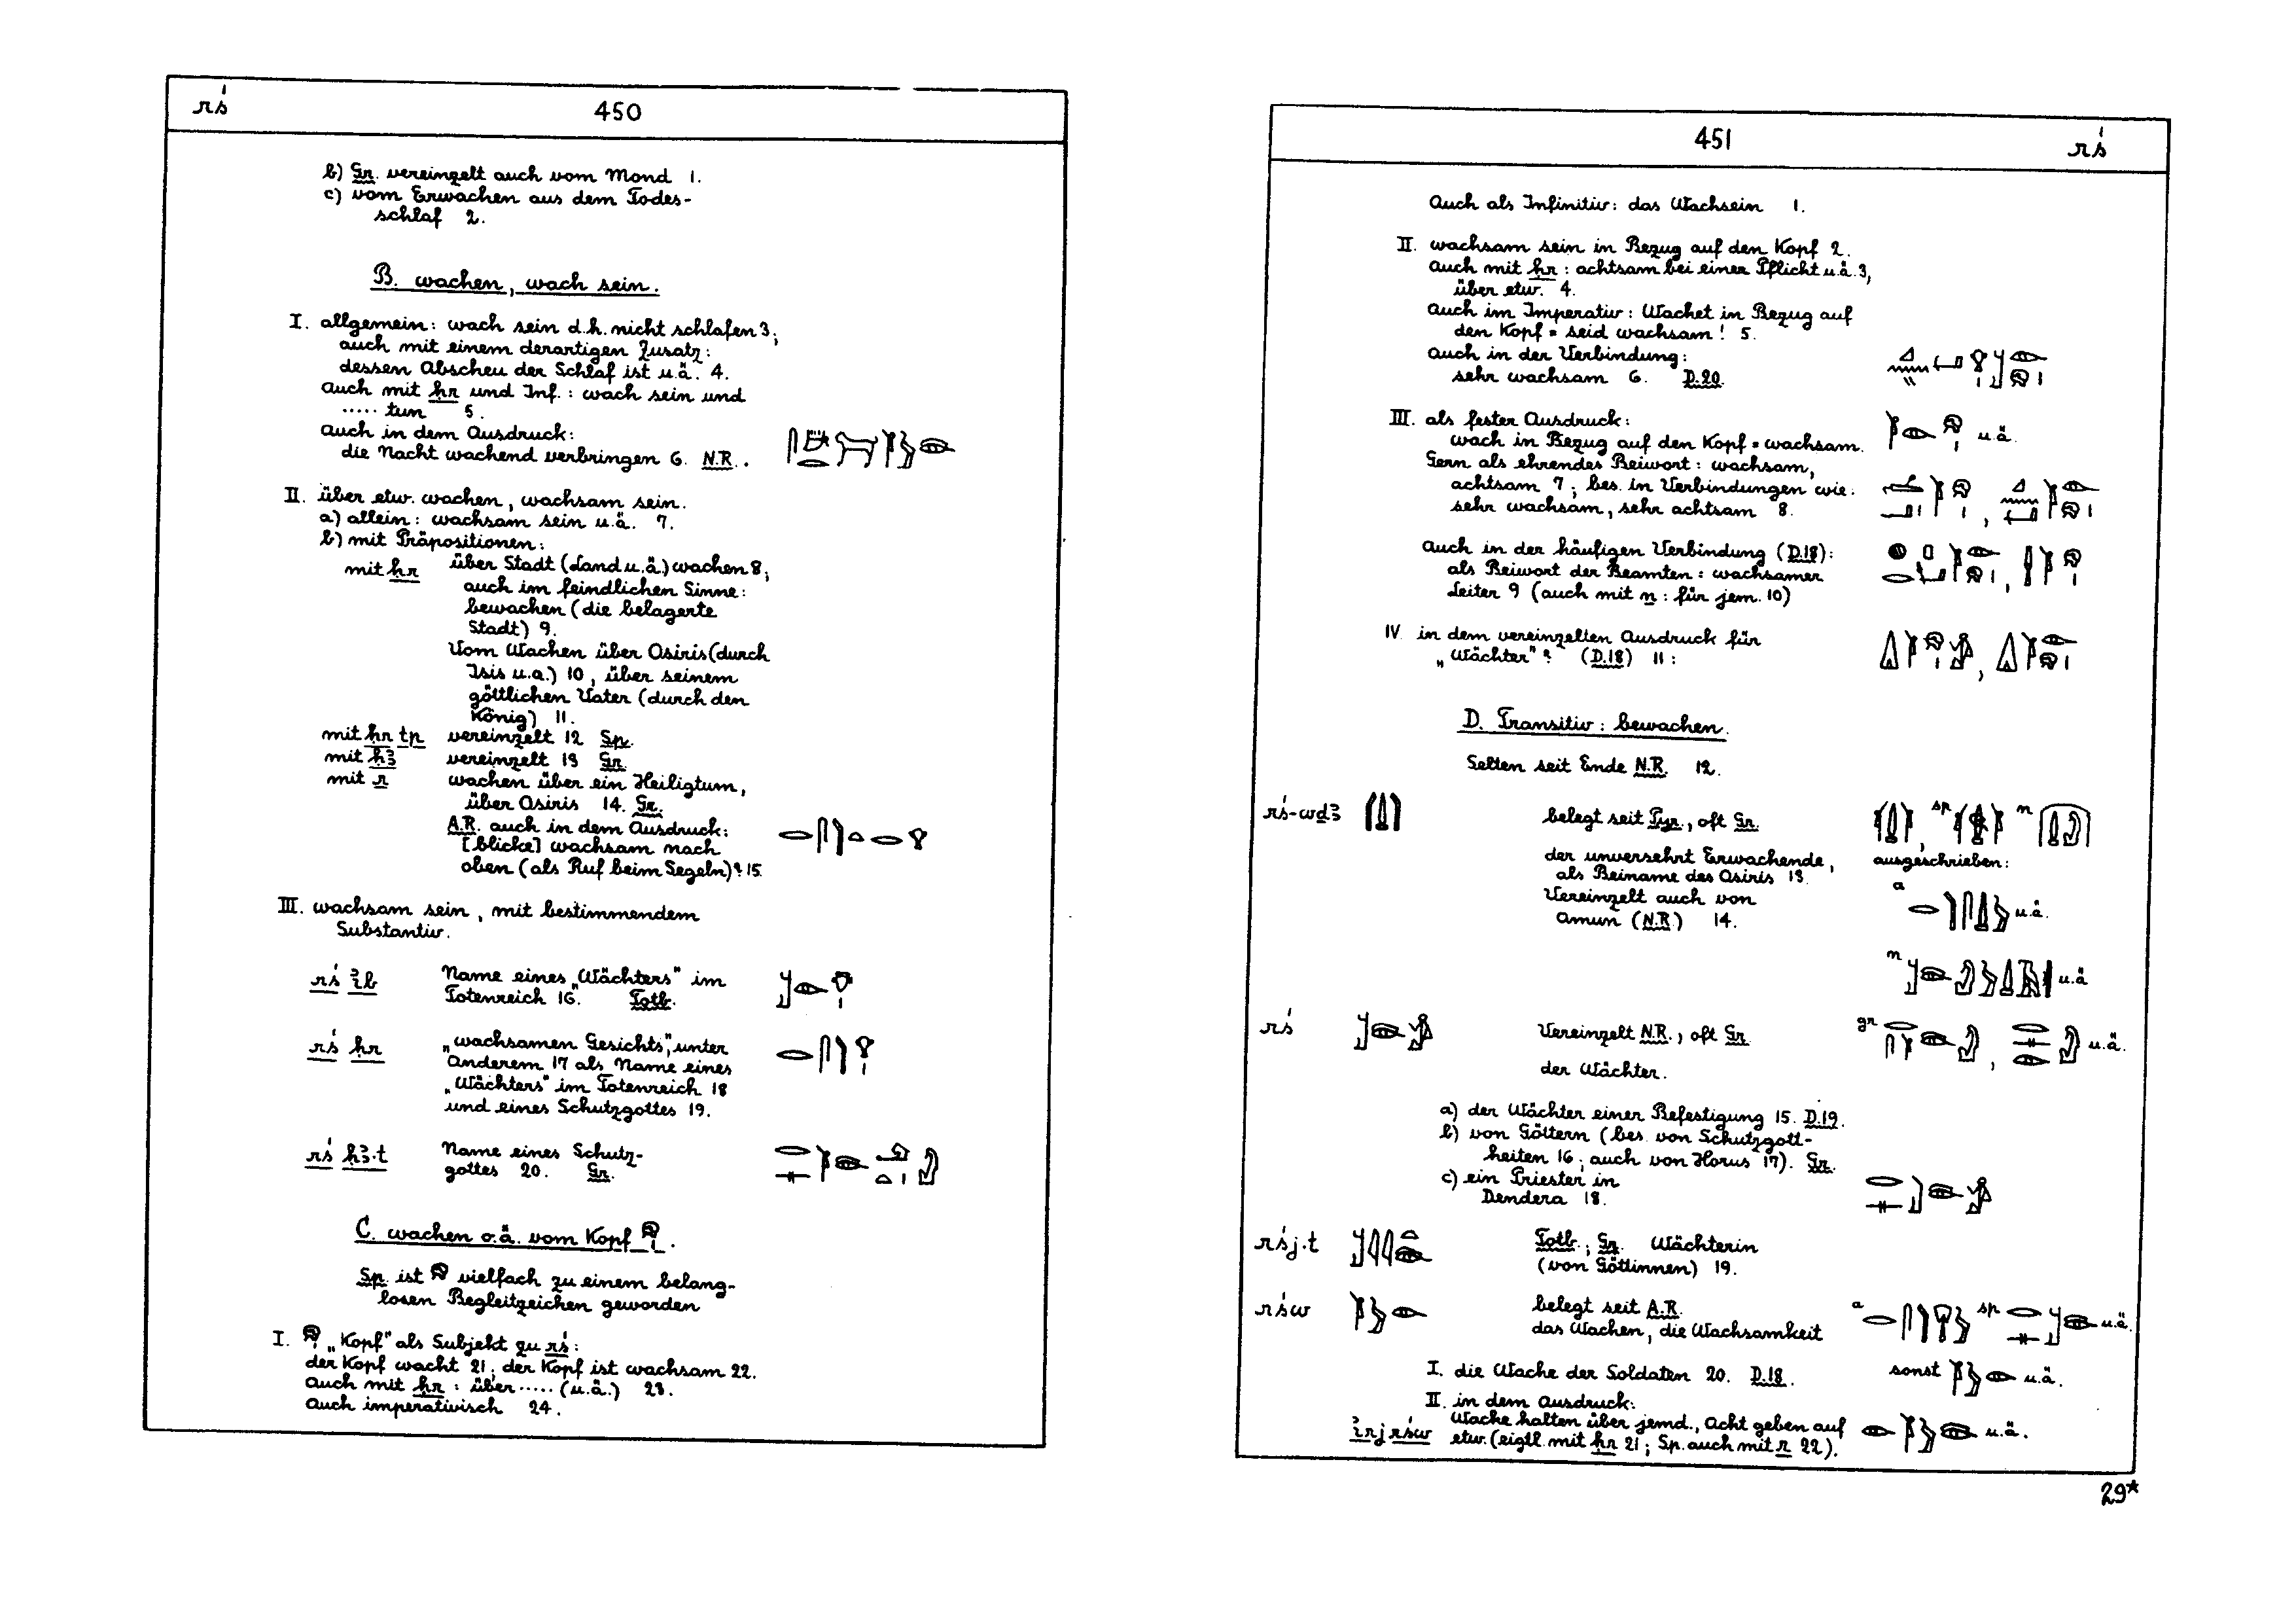 rś 450
b) Gr. vereinzelt auch vom Mond 1.
c) vom Erwachen aus dem Todes-
schlaf 2.
B. wachen, wach sein.
I. allgemein: wach sein d.h. nicht schlafen 3;
auch mit einem derartigen Zusatz:
dessen Abscheu der Schlaf ist u.ä. 4.
Auch mit ḥr und Inf.: wach sein und
..... tun 5.
Auch in dem Ausdruck:
die Nacht wachend verbringen 6. N.R..
II. über etw. wachen, wachsam sein.
a) allein: wachsam sein u.ä. 7.
b) mit Präpositionen:
mit ḥr über Stadt (Land u.ä.) wachen 8;
auch im feindlichen Sinne:
bewachen (die belagerte
Stadt) 9.
Vom Wachen über Osiris (durch
Isis u.a.) 10, über seinem
göttlichen Vater (durch den
König) 11.
mit ḥr tp vereinzelt 12 Sp.
mit ḥꜣ vereinzelt 13 Gr.
mit r wachen über ein Heiligtum,
über Osiris 14. Gr.
A.R. auch in dem Ausdruck:
[blicke] wachsam nach
oben (als Ruf beim Segeln)? 15.
III. wachsam sein, mit bestimmendem
Substantiv.
rś ỉb Name eines „Wächters" im
Totenreich 16. Totb.
rś ḥr „wachsamen Gesichts", unter
Anderem 17 als Name eines
„Wächters" im Totenreich 18
und eines Schutzgottes 19.
rś ḥꜣ.t Name eines Schutz-
gottes 20. Gr.
C. wachen o.ä. vom Kopf 𓁶.
Sp. ist 𓁶 vielfach zu einem belang-
losen Begleitzeichen geworden
I. 𓁶 „Kopf" als Subjekt zu rś:
der Kopf wacht 21; der Kopf ist wachsam 22.
Auch mit ḥr: über ..... (u.ä.) 23.
Auch imperativisch 24.
451 rś
Auch als Infinitiv: das Wachsein 1.
II. wachsam sein in Bezug auf den Kopf 2.
Auch mit ḥr: achtsam bei einer Pflicht u.ä. 3,
über etw. 4.
Auch im Imperativ: Wachet in Bezug auf
den Kopf = seid wachsam! 5.
Auch in der Verbindung:
sehr wachsam 6. D.20.
III. als fester Ausdruck:
wach in Bezug auf den Kopf = wachsam. u.ä.
Gern als ehrendes Beiwort: wachsam,
achtsam 7; bes. in Verbindungen wie:
sehr wachsam, sehr achtsam 8.
Auch in der häufigen Verbindung (D.18):
als Beiwort der Beamten: wachsamer
Leiter 9 (auch mit n: für jem. 10)
IV. in dem vereinzelten Ausdruck für
„Wächter"? (D.18) 11:
D. Transitiv: bewachen.
Selten seit Ende N.R. 12.
rś-wḏꜣ belegt seit Pyr., oft Gr. sp n
der unversehrt Erwachende, ausgeschrieben:
als Beiname des Osiris 13.
Vereinzelt auch von a
Amun (N.R.) 14. u.ä.
n u.ä
rś Vereinzelt N.R., oft Gr. gr u.ä.
der Wächter.
a) der Wächter einer Befestigung 15. D.19.
b) von Göttern (bes. von Schutzgott-
heiten 16; auch von Horus 17). Gr.
c) ein Priester in
Dendera 18.
rśj.t Totb.; Gr. Wächterin
(von Göttinnen) 19.
rśw belegt seit A.R. a sp u.ä.
das Wachen, die Wachsamkeit
I. die Wache der Soldaten 20. D.18. sonst u.ä.
II. in dem Ausdruck:
Wache halten über jemd., Acht geben auf
ỉrj rśw etw. (eigtl. mit ḥr 21; Sp. auch mit r 22). u.ä.
29*